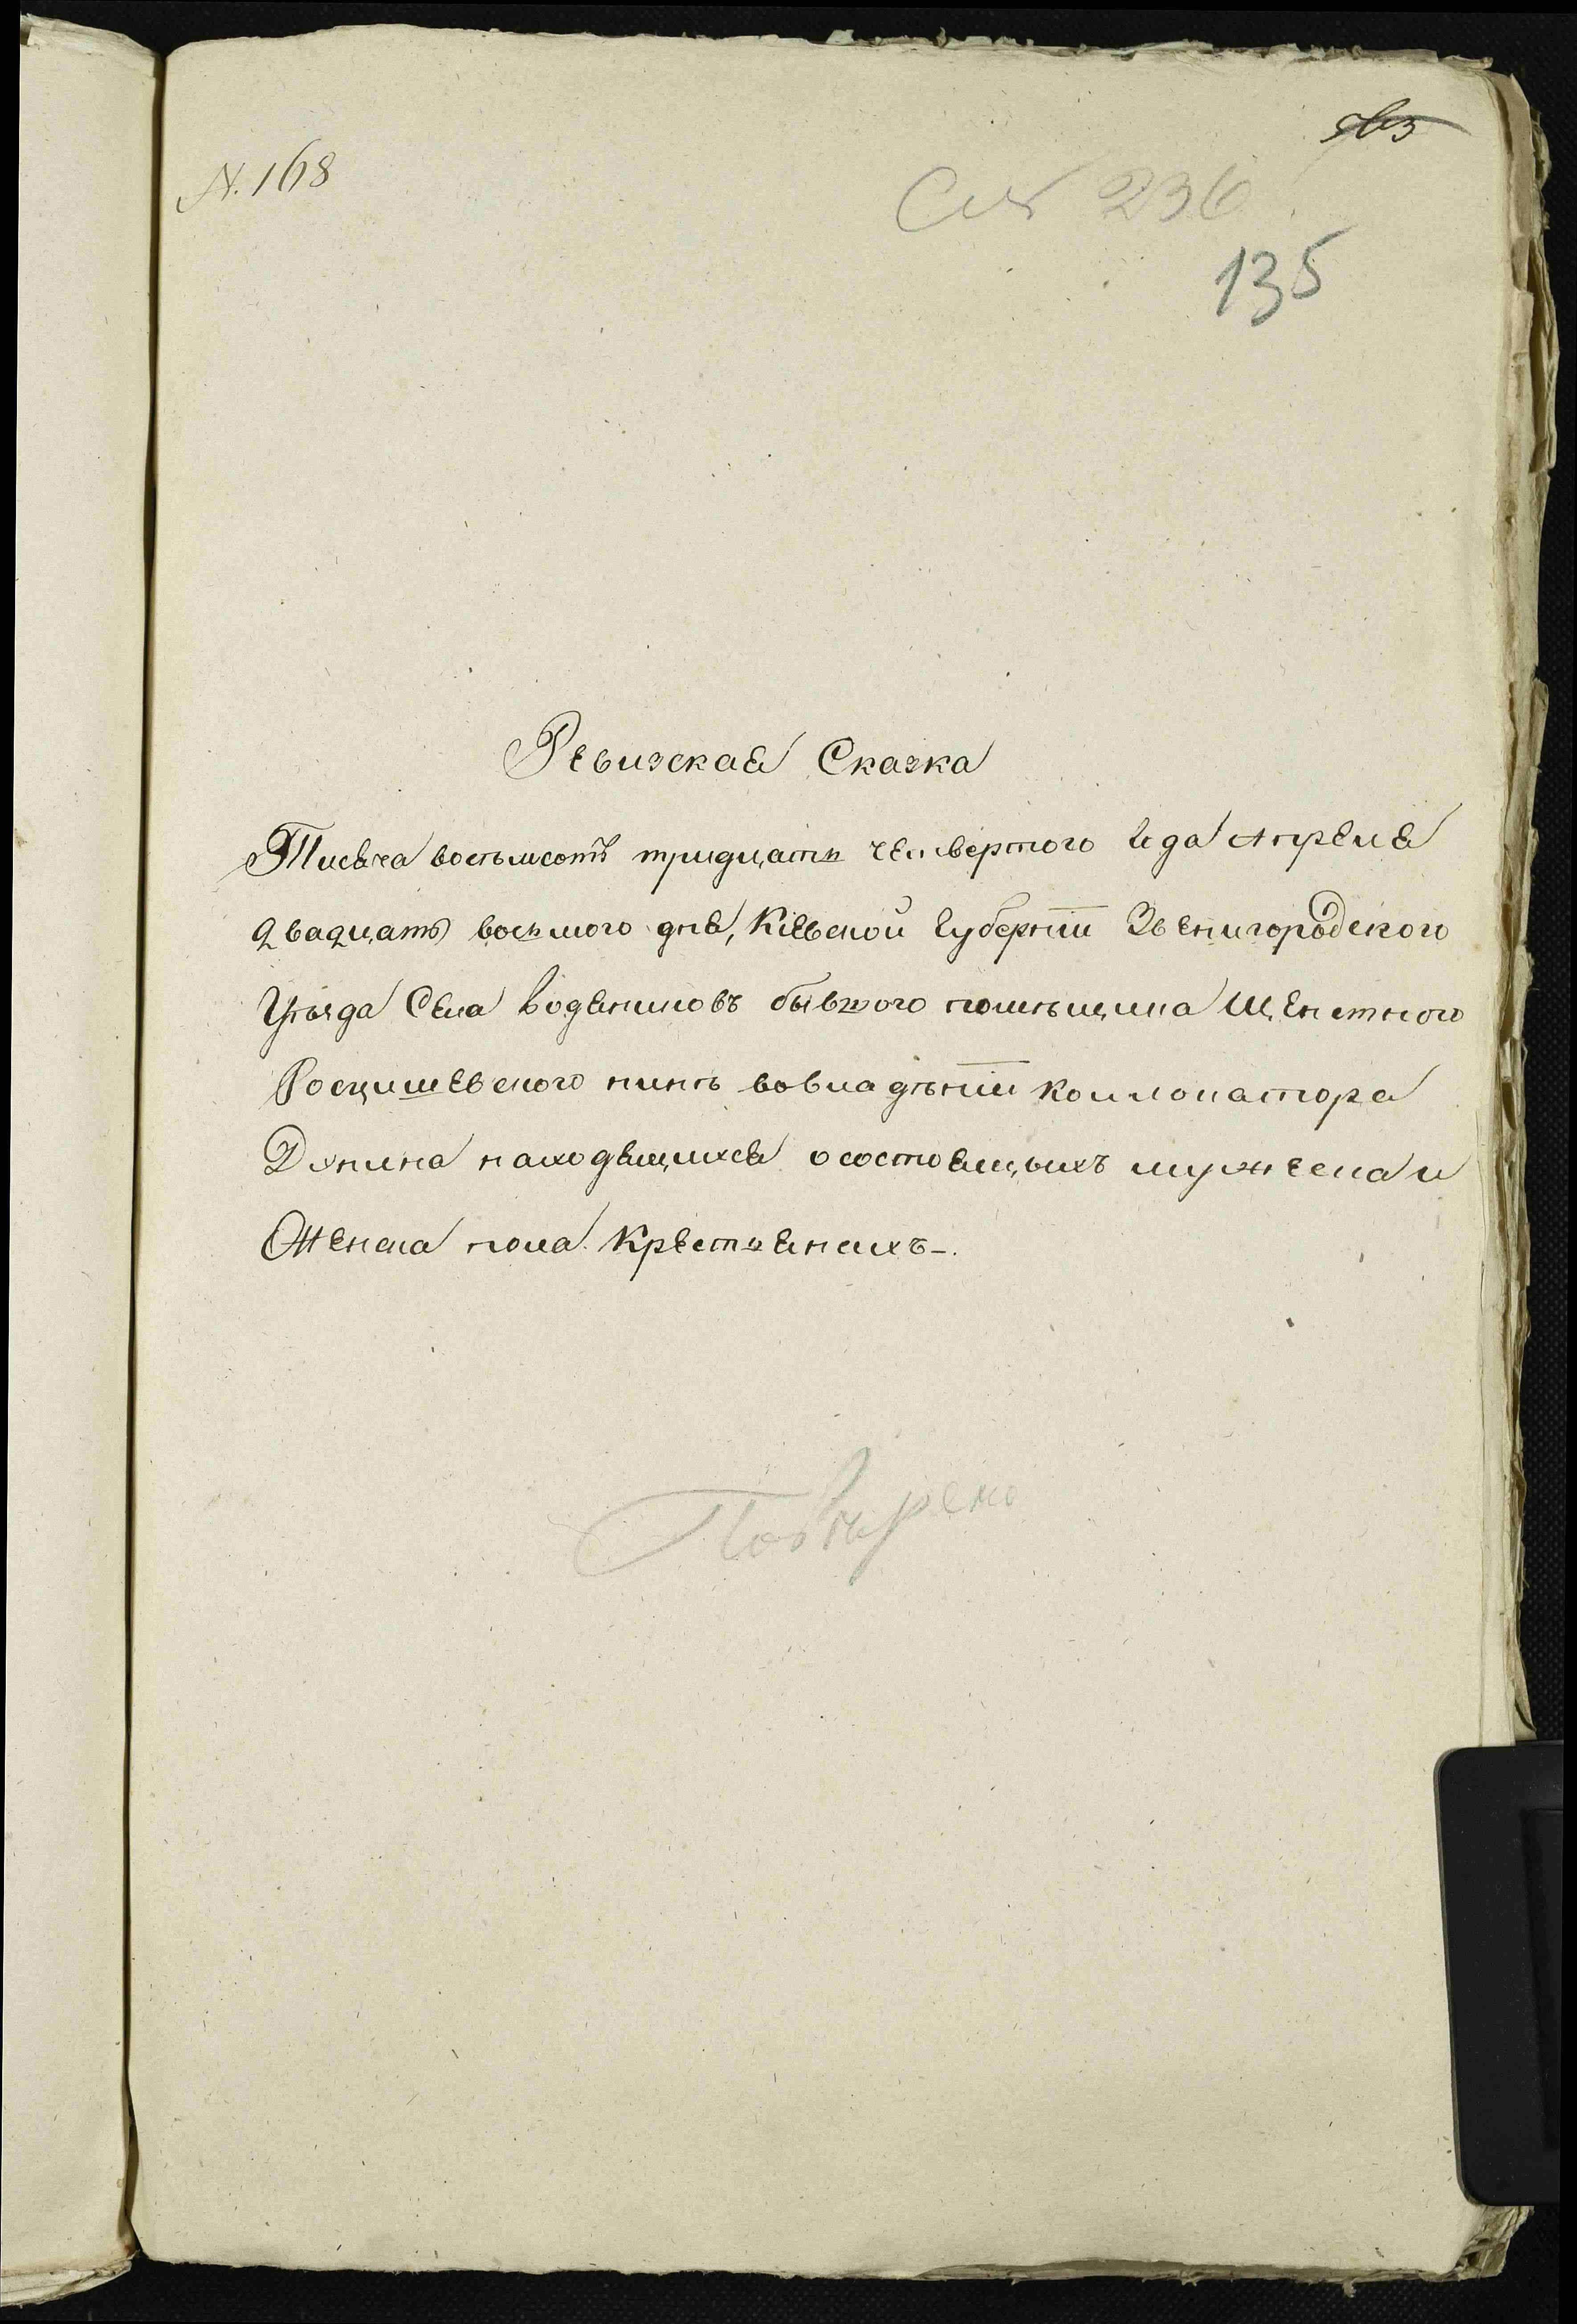 563
N. 168
236
135
Ревизская Сказка
Тисяча восьмсотъ тридцать четвертого года Апреля
двадцатъ восьмого дня, Кіевской Губерніи Звенигородского
Уѣзда Села Водяниковъ бывшого помѣщика Щенстного
Росцишевского нинѣ вовладѣніи коллокатора
Дунина находящихся осостоящыхъ мужеска и
Женска пола Крестьянахъ-.
Повѣрено